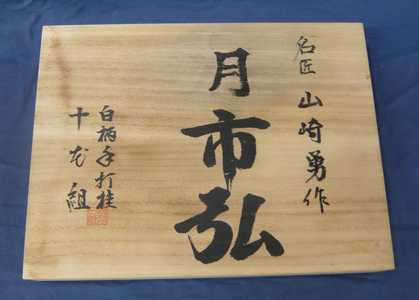 名匠 山崎勇作
月市弘
白柄手打桂
十本組